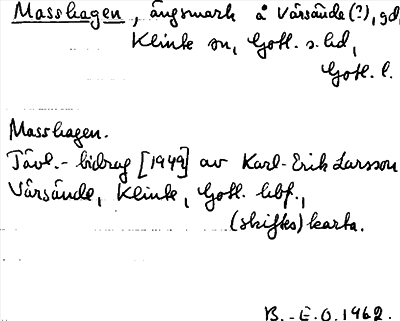 Masshagen, ängsmark å Vårsände(?), gd,
Klinte sn, Gotl. s. hd,
Gotl. l.
Masshagen.
Tävl.-bidrag [1949] av Karl-Erik Larsson
Vårsände, Klinte, Gotl. hbf.,
(skiftes)karta.
B.-E.O. 1962.